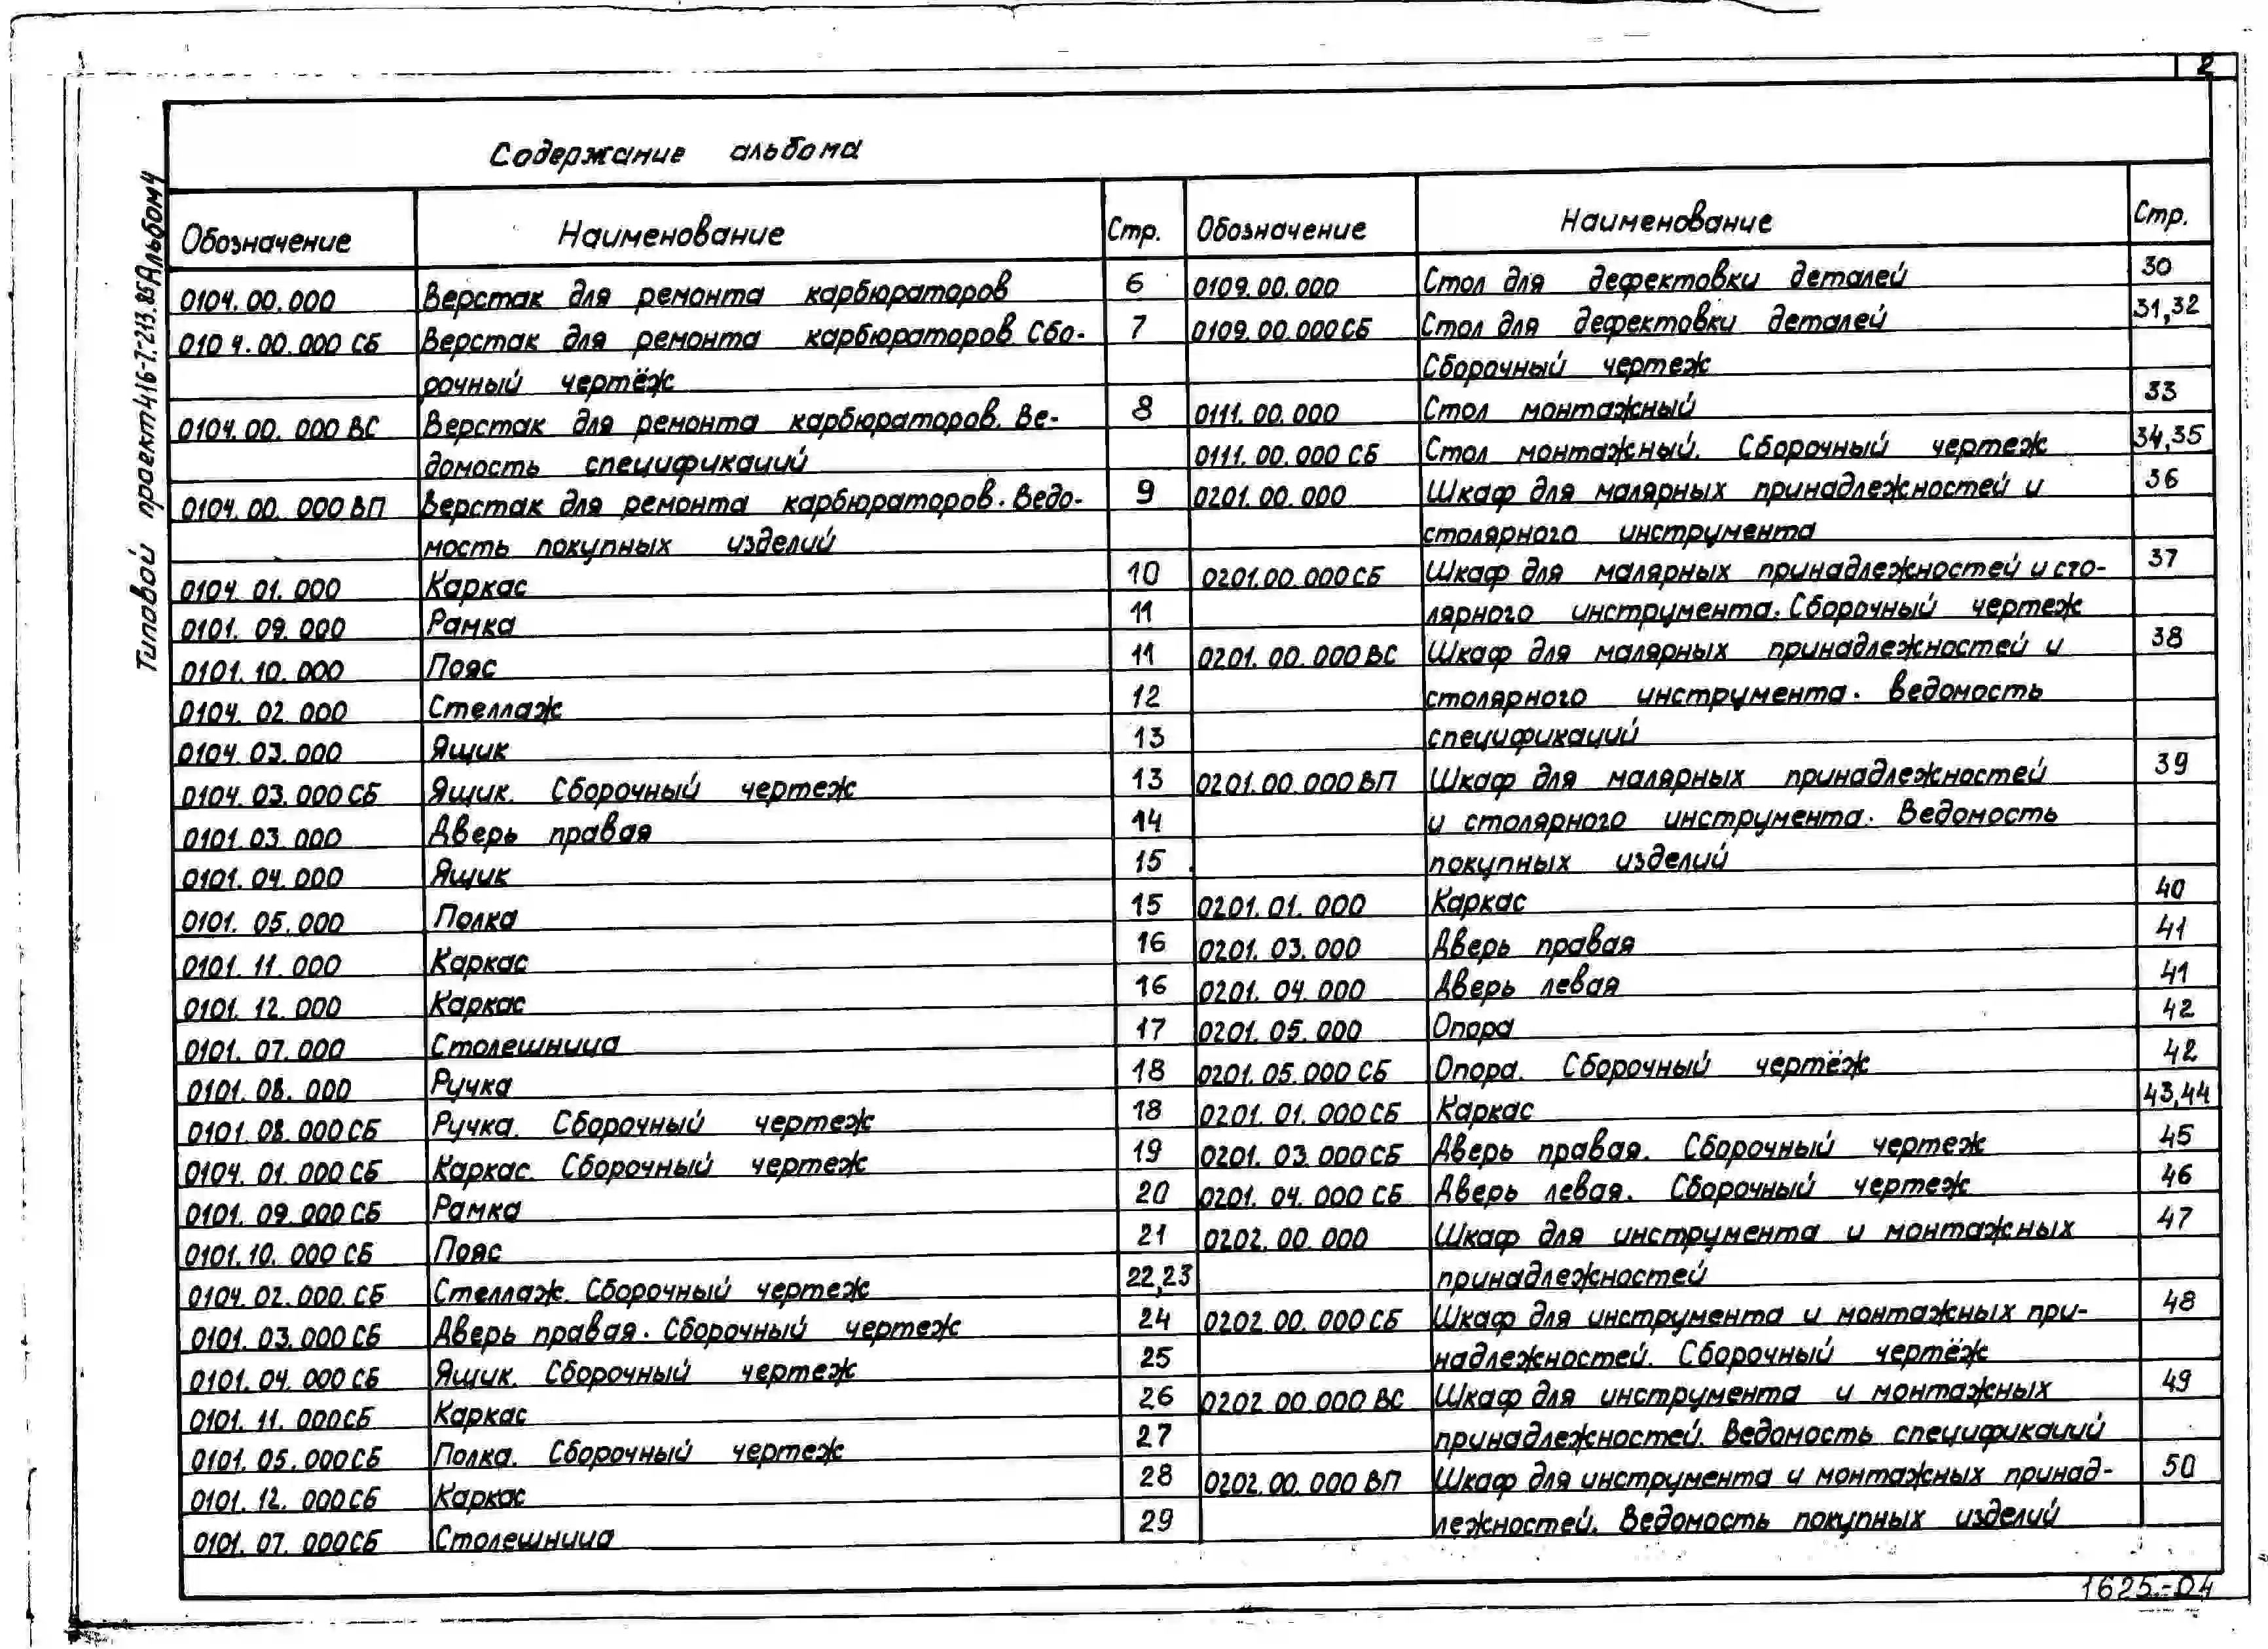 2
Содержание альбома
Типовой проект 416-7-213.85 Альбом 4
Обозначение Наименование Стр.
0104.00.000 Верстак для ремонта карбюраторов 6
0104.00.000 СБ Верстак для ремонта карбюраторов Сбо- 7
рочный чертёж
0104.00.000 ВС Верстак для ремонта карбюраторов. Ве- 8
домость спецификаций
0104.00.000 ВП Верстак для ремонта карбюраторов. Ведо- 9
мость покупных изделий
0104.01.000 Каркас 10
0101.09.000 Рамка 11
0101.10.000 Пояс 11
0104.02.000 Стеллаж 12
0104.03.000 Ящик 13
0104.03.000 СБ Ящик. Сборочный чертеж 13
0101.03.000 Дверь правая 14
0101.04.000 Ящик 15
0101.05.000 Полка 15
0101.11.000 Каркас 16
0101.12.000 Каркас 16
0101.07.000 Столешница 17
0101.08.000 Ручка 18
0101.08.000 СБ Ручка. Сборочный чертеж 18
0104.01.000 СБ Каркас. Сборочный чертеж 19
0101.09.000 СБ Рамка 20
0101.10.000 СБ Пояс 21
0104.02.000.СБ Стеллаж. Сборочный чертеж 22,23
0101.03.000 СБ Дверь правая. Сборочный чертеж 24
0101.04.000 СБ Ящик. Сборочный чертеж 25
0101.11.000СБ Каркас 26
0101.05.000СБ Полка. Сборочный чертеж 27
0101.12.000СБ Каркас 28
0101.07.000СБ Столешница 29
Обозначение Наименование Стр.
0109.00.000 Стол для дефектовки деталей 30
0109.00.000СБ Стол для дефектовки деталей 31,32
Сборочный чертеж
0111.00.000 Стол монтажный 33
0111.00.000 СБ Стол монтажный. Сборочный чертеж 34,35
0201.00.000 Шкаф для малярных принадлежностей и 36
столярного инструмента
0201.00.000СБ Шкаф для малярных принадлежностей и сто- 37
лярного инструмента. Сборочный чертеж
0201.00.000ВС Шкаф для малярных принадлежностей и 38
столярного инструмента. Ведомость
спецификаций
0201.00.000ВП Шкаф для малярных принадлежностей 39
и столярного инструмента. Ведомость
покупных изделий
0201.01.000 Каркас 40
0201.03.000 Дверь правая 41
0201.04.000 Дверь левая 41
0201.05.000 Опора 42
0201.05.000 СБ Опора. Сборочный чертёж 42
0201.01.000СБ Каркас 43,44
0201.03.000СБ Дверь правая. Сборочный чертеж 45
0201.04.000 СБ Дверь левая. Сборочный чертеж 46
0202.00.000 Шкаф для инструмента и монтажных 47
принадлежностей
0202.00.000СБ Шкаф для инструмента и монтажных при- 48
надлежностей. Сборочный чертёж
0202.00.000 ВС Шкаф для инструмента и монтажных 49
принадлежностей. Ведомость спецификаций
0202.00.000 ВП Шкаф для инструмента и монтажных принад- 50
лежностей. Ведомость покупных изделий
1625-04